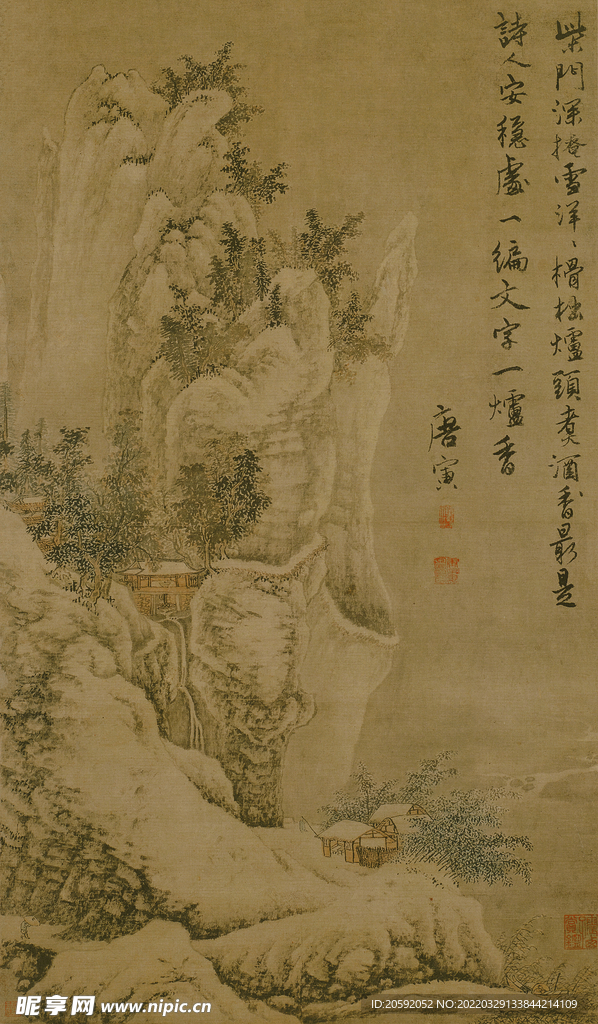 柴門深掩雪洋〻榾柮爐頭煮酒香最是
詩人安穩處一編文字一爐香
唐寅
昵享网 www.nipic.cn
ID:20592052 NO:20220329133844214109